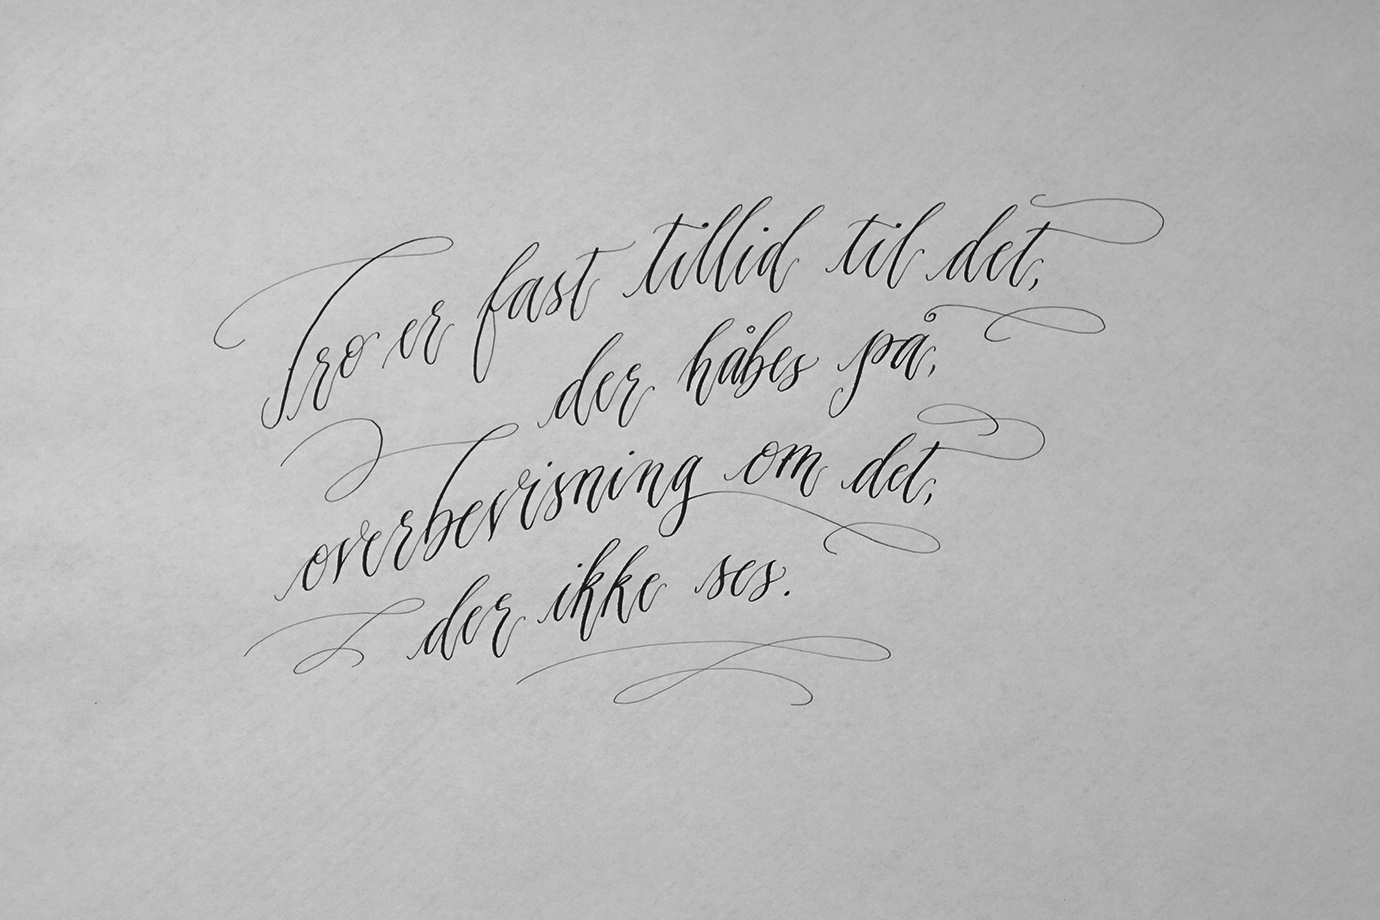 Tro er fast tillid til det,
der håbes på,
overbevisning om det,
der ikke ses.